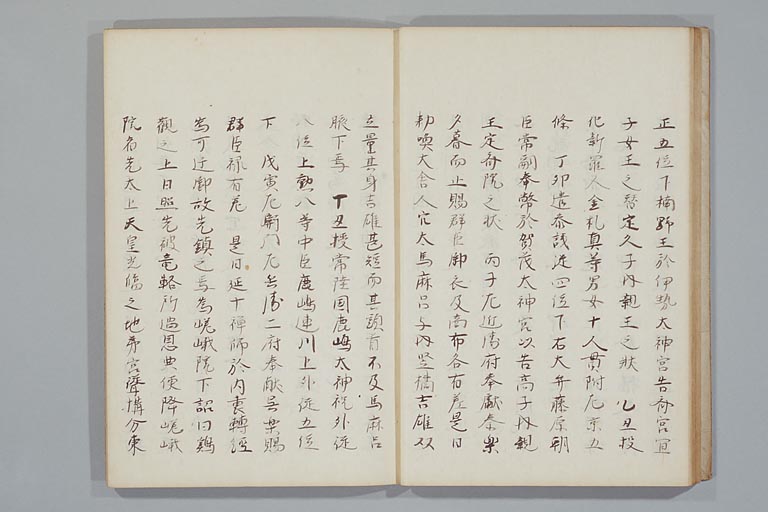 正五位下楠野王於伊勢大神宮告斎宮宜
子女王之替定久子内親王之状　乙丑投
化新羅人金礼真等男女十人貫附左京五
條　丁卯遣参議従四位下右大弁藤原朝
臣常嗣奉幣於賀茂大神宮以告高子内親
王定斎院之状　丙子左近衛府奉献奏楽
夕暮而止賜群臣御衣及商布各有差是日
勅喚大舎人穴太馬麻呂与内竪橘吉雄双
立量其身吉雄甚短而其頭首不及馬麻呂
腋下焉　丁丑授常陸国鹿嶋大神祝外従
八位上勲八等中臣鹿嶋連川上外従五位
下　戊寅左衛門左兵衛二府奉献呉楽賜
群臣禄有差　是日延十禅師於内裏転経
為可遷御故先鎮之焉為嵯峨院下詔曰鶏
観之上日照先被竜輅所過恩典便降嵯峨
院者先太上天皇光臨之地爾宮聳構分東